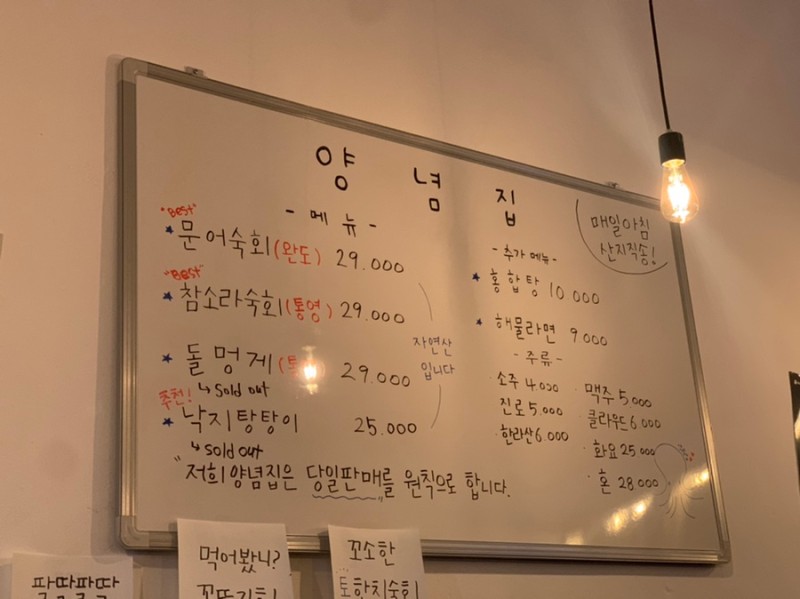 양념집
- 메뉴 -
"BEST"
* 문어숙회(완도) 29.000
"BEST"
* 참소라숙회(통영) 29.000
* 돌멍게 29.000
↳ Sold out
추천!
* 낙지탕탕이 25.000
↳ Sold out
자연산
입니다
매일아침
산지직송!
- 추가 메뉴 -
* 홍합탕 10.000
* 해물라면 9.000
- 주류 -
소주 4.000
진로 5.000
한라산 6.000
· 맥주 5.000
· 클라우드 6.000
· 화요 25.000
· 혼 28.000
"저희 양념집은 당일판매를 원칙으로 합니다.
팔딱팔딱
먹어봤니?
꼬소한